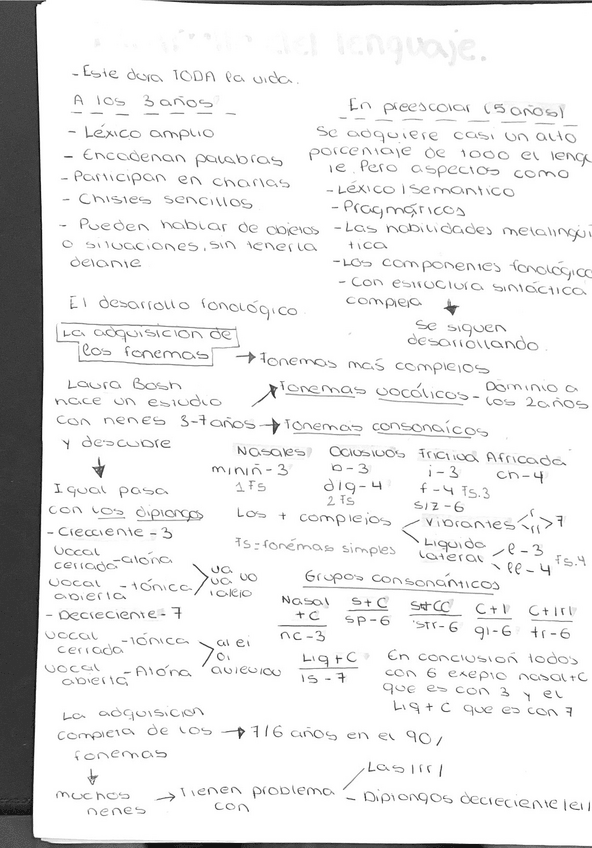 del lenguaje.
- Este dura TODA la vida.
A los 3 años
- Léxico amplio
- Encadenan palabras
- Participan en charlas
- Chistes sencillos
- Pueden hablar de objetos
o situaciones, sin tenerla
delante
En preescolar (5 años)
Se adquiere casi un alto
porcentaje de todo el lengu
je. Pero aspectos como
- Léxico / semantico
- Pragmáticos
- Las habilidades metalingüi
tica
- Los componentes fonológico
- Con estructura sintáctica
compleja
Se siguen
desarrollando.
El desarrollo fonológico.
La adquisición de
los fonemas
→ Fonemas mas complejos
Laura Bosh
hace un estudio
con nenes 3-7 años
y descubre
Fonemas vocálicos - Dominio a
los 2 años
→ Fonemas consonaicos
Nasales Oclusivos Fricativa Africada
m/n/ñ - 3 b - 3 j - 3 ch - 4
1 Fs d/g - 4 f - 4 Fs.3
2 Fs s/z - 6
Igual pasa
con los diptongos
- Crecciente - 3
vocal
cerrada - atóna
vocal - tónica
abierta
ua
- Decreciente - 7
vocal - tónica
cerrada
vocal - Atóna
abierta
ai ei
oi
Los + complejos
Vibrantes r rr 7
Liquido
lateral l - 3
ll - 4 Fs.4
Fs = fonémas simples
Grupos consonánticos
Nasal
+ C
nc - 3
s + C
sp - 6
s + CC
str - 6
C + l
gl - 6
C + /r/
tr - 6
Liq + C
ls - 7
En conclusión todos
con 6 exepto nasal + C
que es con 3 y el
Liq + C que es con 7
La adquisicion
completa de los → 7/6 años en el 90/
fonemas
muchos
nenes
→ Tienen problema
con
Las /rr/
- Diptongos decreciente /ei/